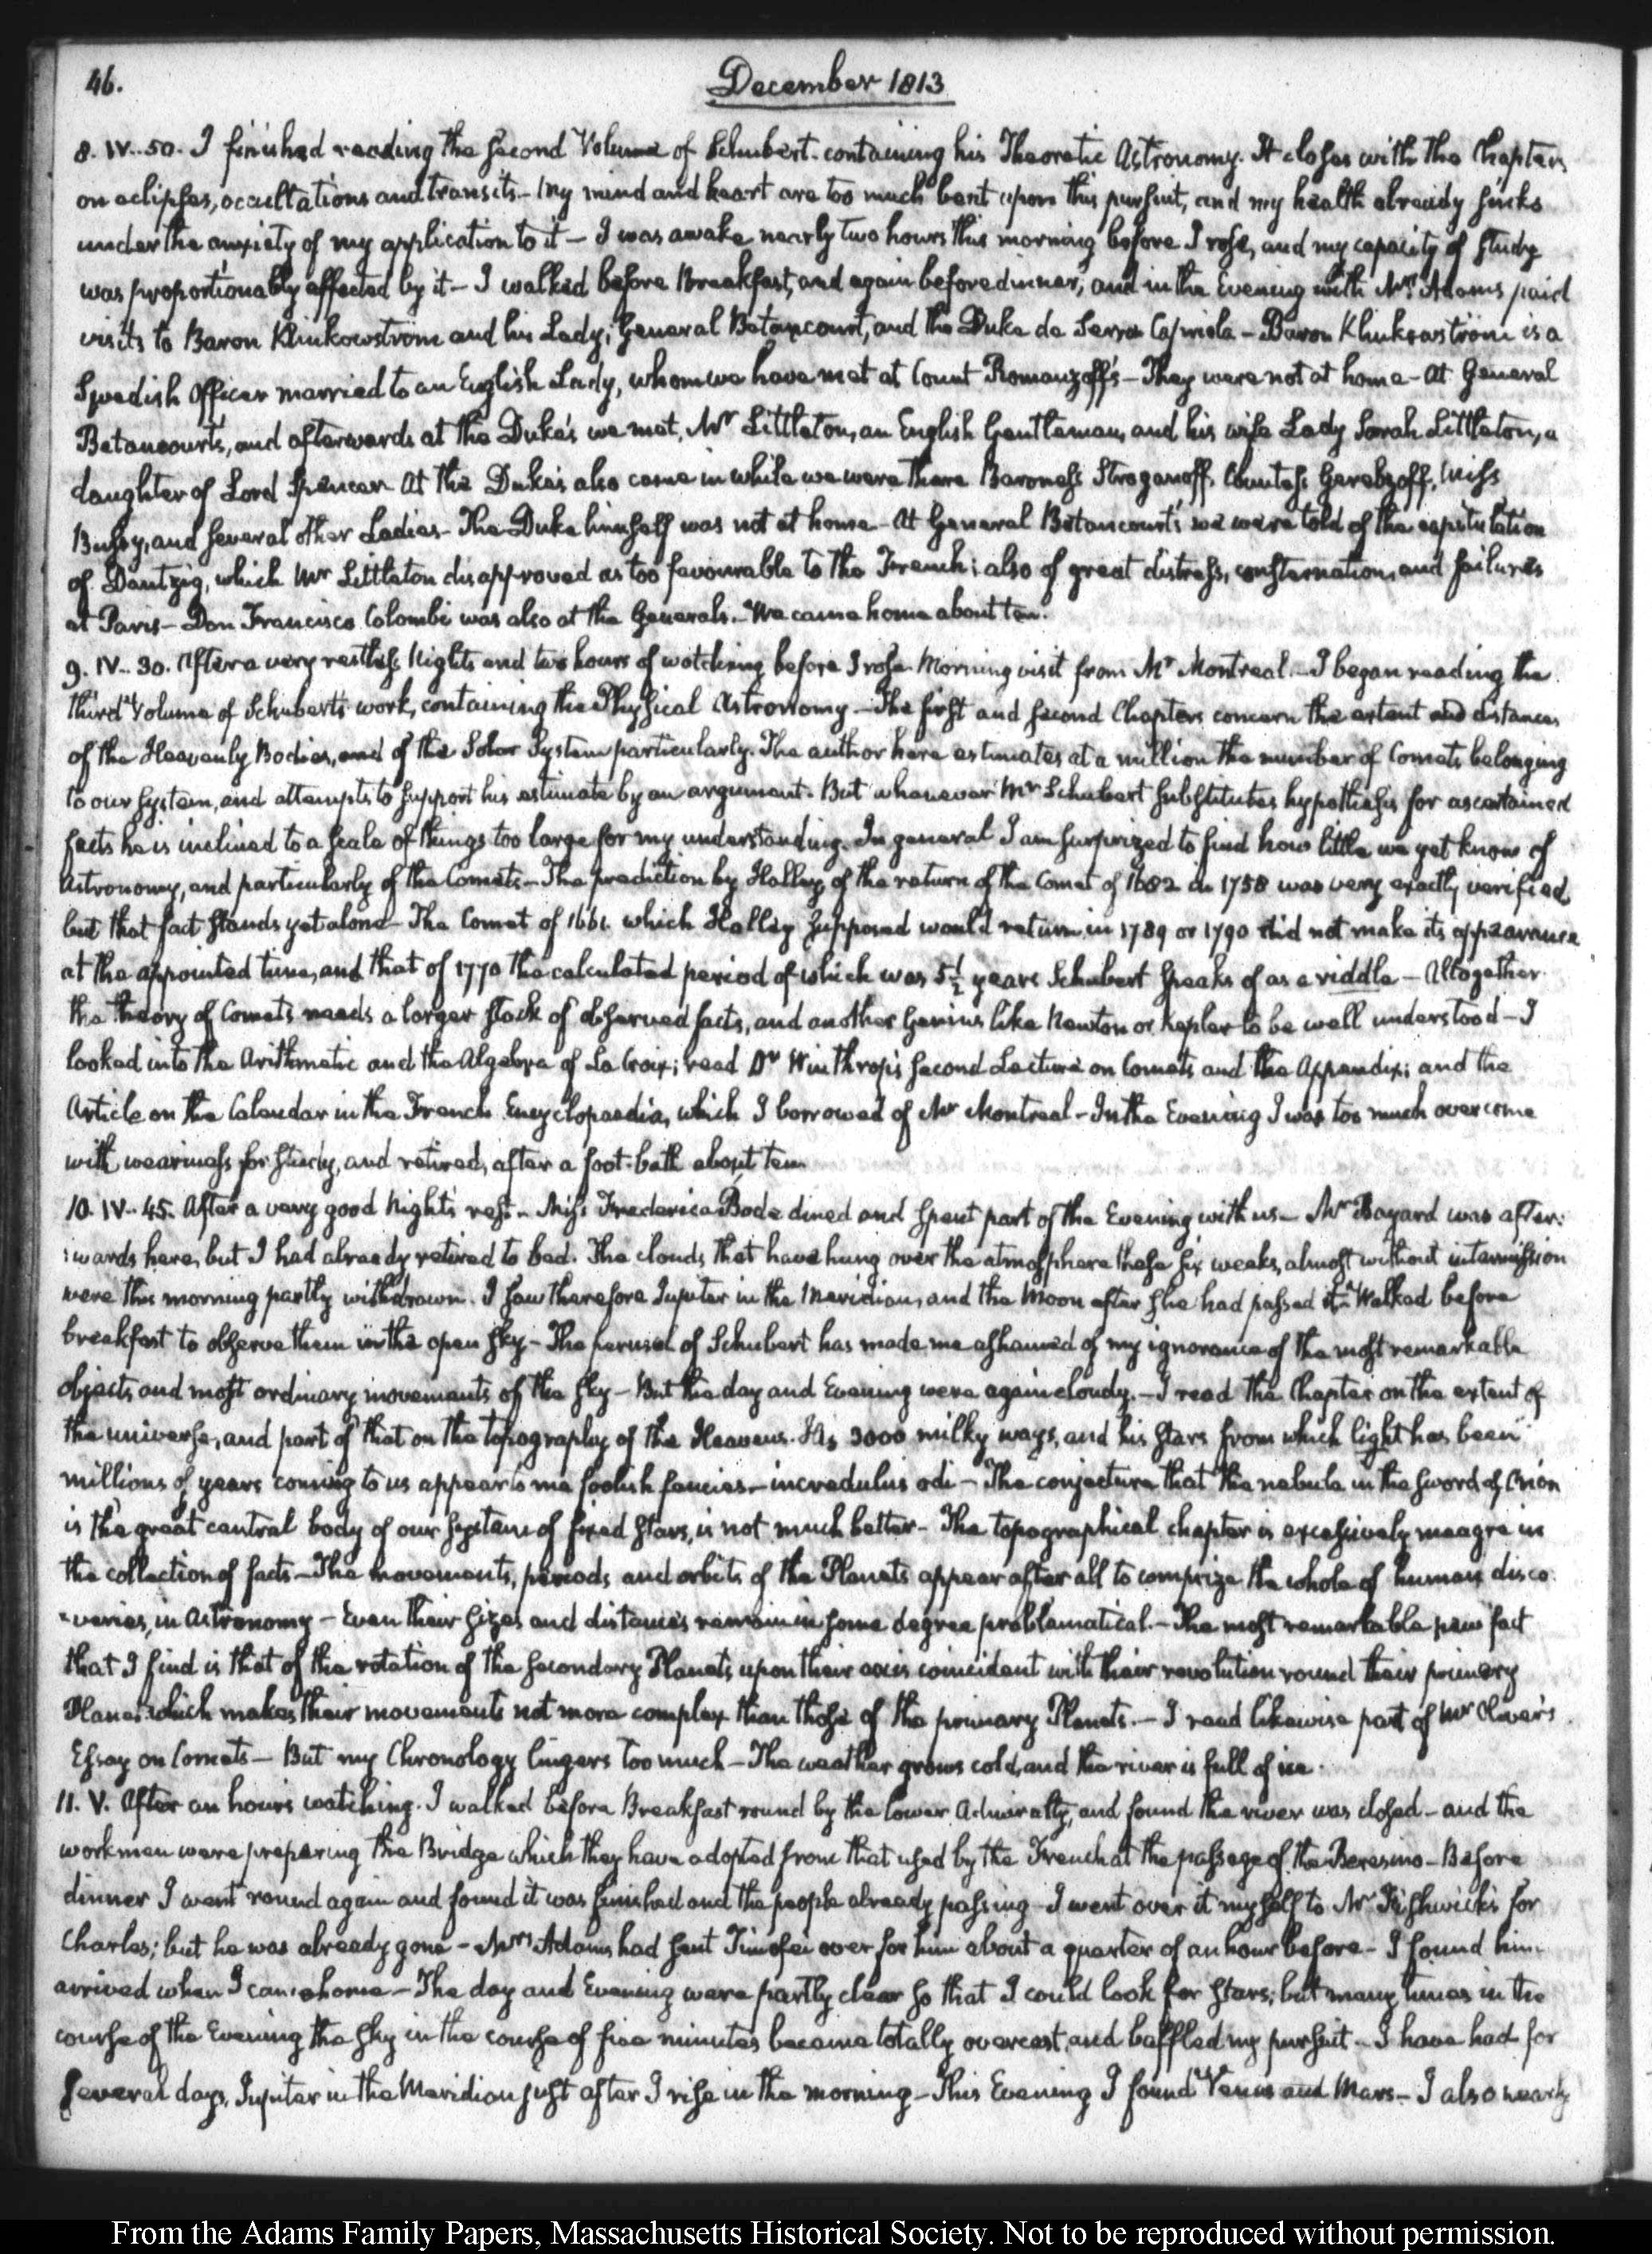 46.
December 1813
8. IV..50. I finished reading the second Volume of Schubert. containing his Theoretic Astronomy. It closes with the Chapter
on eclipses, occultations and transits— My mind and heart are too much bent upon this pursuit, and my health already sinks
under the anxiety of my application to it— I was awake nearly two hours this morning before I rose, and my capacity of study
was proportionably affected by it— I walked before Breakfast, and again before dinner; and in the Evening with Mrs. Adams paid
visits to Baron Klinkowström and his Lady; General Betancourt, and the Duke de Serra Capriola— Baron Klinkowström is a
Swedish Officer married to an English Lady, whom we have met at Count Romanzoff's— They were not at home— At General
Betancourt's, and afterwards at the Duke's we met, Mr. Littleton, an English Gentleman, and his wife Lady Sarah Littleton, a
daughter of Lord Spencer. At the Duke's also came in while we were there Baroness Stroganoff, Countess Gerebzoff, Miss
and several other Ladies— The Duke himself was not at home— At General Betancourt's we were told of the capitulation
of Dantzig, which Mr. Littleton disapproved as too favourable to the French; also of great distress, consternation, and failures
at Paris— Don Francisco Colombi was also at the Generals.— We came home about ten.
9. IV..30. After a very restless Night, and two hours of watching before I rose. Morning visit from Mr. Montreal.— I began reading the
third Volume of Schubert's work, containing the Physical Astronomy.— The first and second Chapters concern the extent and distances
of the Heavenly Bodies, and of the Solar System particularly. The author here estimates at a million the number of Comets belonging
to our System, and attempts to support his estimate by an argument. But whenever Mr. Schubert substitutes hypothesis for ascertained
facts he is inclined to a scale of things too large for my understanding. In general I am surprized to find how little we yet know of
Astronomy, and particularly of the Comets— The prediction by Halley of the return of the Comet of 1682 in 1758 was very exactly verified,
but that fact stands yet alone— The Comet of 1661. which Halley supposed would return in 1789 or 1790 did not make its appearance
at the appointed time, and that of 1770 the calculated period of which was 5½ years Schubert speaks of as a riddle— Altogether
the theory of Comets needs a larger stock of observed facts, and another Genius like Newton or Kepler to be well understood— I
looked into the Arithmetic and the Algebra of La Croix; read Dr. Winthrop's second Lecture on Comets and the Appendix; and the
Article on the Calendar in the French Encyclopaedia, which I borrowed of Mr. Montreal— In the Evening I was too much overcome
with weariness for study, and retired, after a foot-bath about ten.
10. IV..45. After a very good Night's rest.— Miss Frederica Bode dined and spent part of the Evening with us— Mr. Bayard was after:
:wards here, but I had already retired to bed. The clouds that have hung over the atmosphere these six weeks, almost without intermission
were this morning partly withdrawn. I saw therefore Jupiter in the Meridian, and the Moon after she had passed it— Walked before
breakfast to observe them in the open sky— The perusal of Schubert has made me ashamed of my ignorance of the most remarkable
objects and most ordinary movements of the sky— But the day and Evening were again cloudy.— I read the Chapter on the extent of
the universe, and part of that on the topography of the Heavens. His 3000 milky ways, and his stars from which light has been
millions of years coming to us appear to me foolish fancies— incredulus odi— The conjecture that the nebula in the sword of Orion
is the great central body of our system of fixed stars, is not much better— The topographical chapter is excessively meagre in
the collection of facts— The movements, periods and orbits of the Planets appear after all to comprize the whole of human disco:
:veries, in Astronomy— Even their sizes and distances remain in some degree problematical.— The most remarkable new fact
that I find is that of the rotation of the secondary Planets upon their axis coincident with their revolution round their primary
Planet: which makes their movements not more complex than those of the primary Planets.— I read likewise part of Mr. Oliver's
Essay on Comets— But my Chronology lingers too much— The weather grows cold, and the river is full of ice.
11. V. After an hour's watching. I walked before Breakfast round by the lower Admiralty, and found the river was closed— and the
workmen were preparing the Bridge which they have adopted from that used by the French at the passage of the Beresino— Before
dinner I went round again and found it was finished and the people already passing— I went over it myself to Mr. Fishwick's for
Charles; but he was already gone— Mrs. Adams had sent Timofei over for him about a quarter of an hour before— I found him
arrived when I came home— The day and Evening were partly clear so that I could look for stars; but many times in the
course of the Evening the sky in the course of five minutes became totally overcast, and baffled my pursuit— I have had for
several days, Jupiter in the Meridian just after I rise in the morning— This Evening I found Venus and Mars— I also nearly
From the Adams Family Papers, Massachusetts Historical Society. Not to be reproduced without permission.